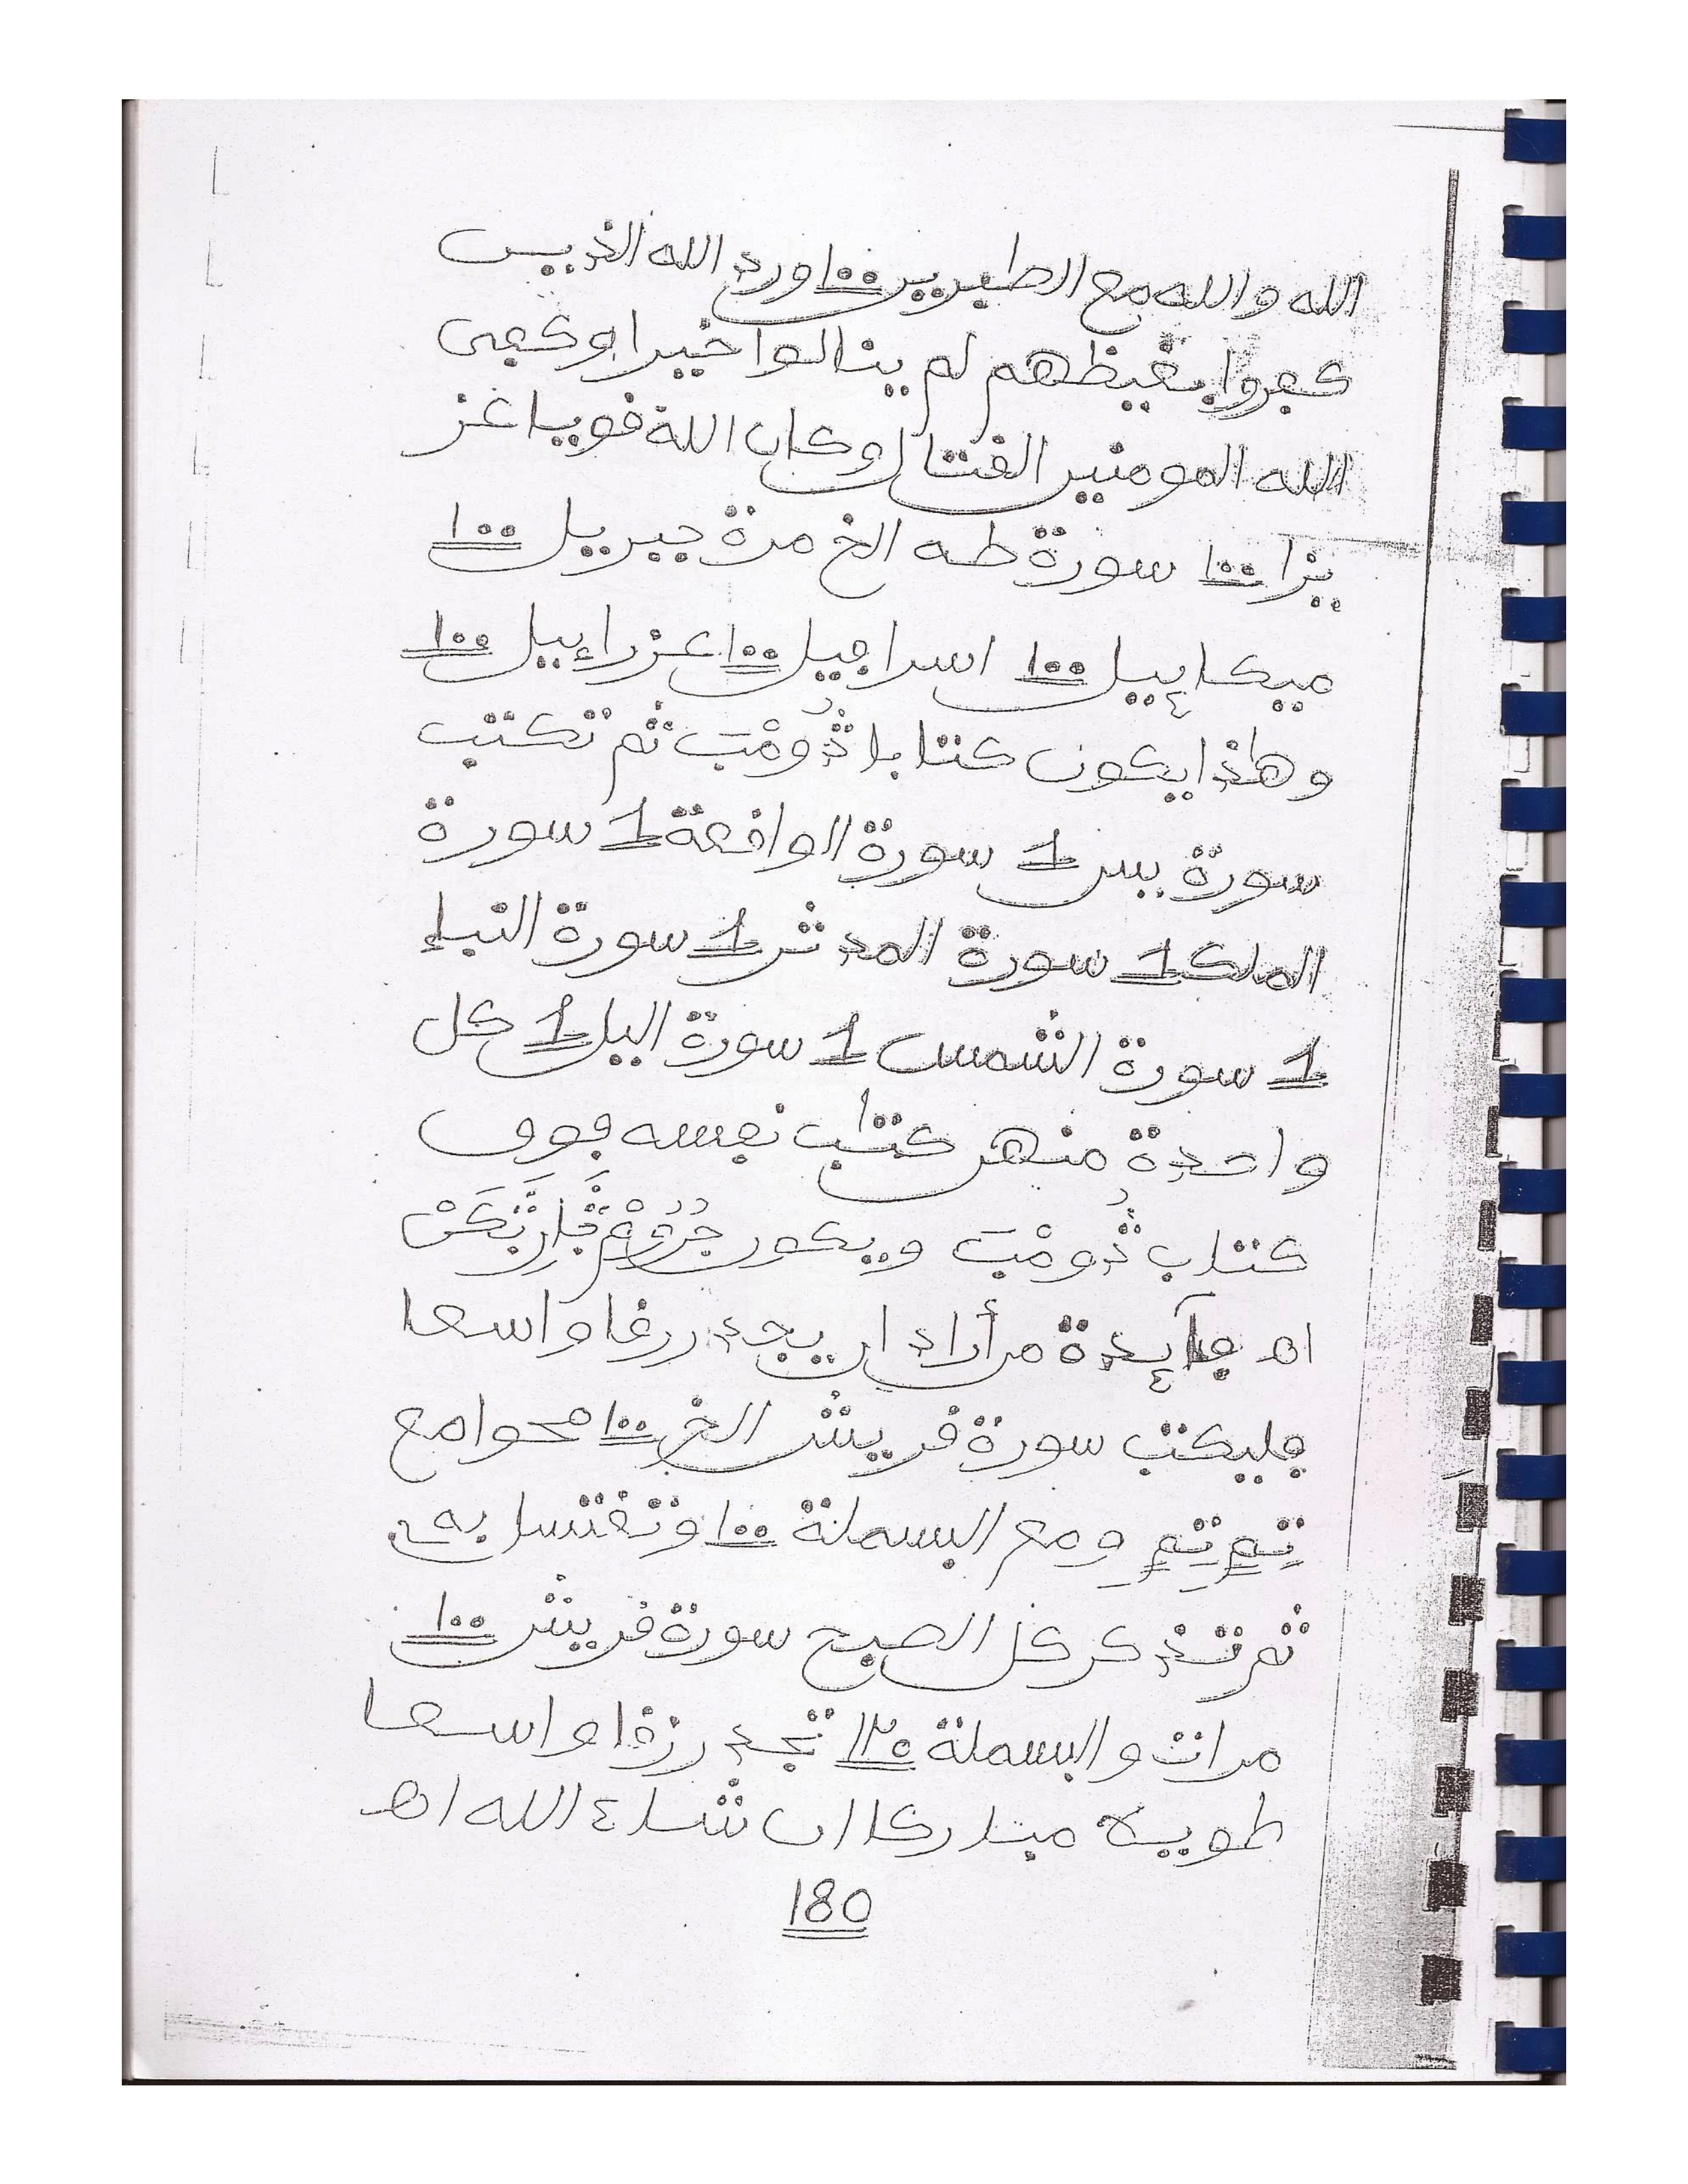 الله والله مع الصبرين ١٠٠ ورد الله الذين
كفروا بغيظهم لم ينالوا خيرا وكفى
الله المومنين القتال وكان الله قويا عز
يزا ١٠٠ سورة طه الخ مرة جبريل ١٠٠
ميكاييل ١٠٠ اسرافيل ١٠٠ عزراييل ١٠٠
وهذا يكون كتابا ثم تكتب
سورة يس 1 سورة الواقعة 1 سورة
الملك 1 سورة المدثر 1 سورة النبإ
1 سورة الشمس 1 سورة اليل 1 كل
واحدة منهن كتاب نفسه فوق
كتاب ويكون
اه فآيدة من أراد ان يجد رزقا واسعا
فليكتب سورة قريش الخ ١٠٠ مع
ومع البسملة ١٠٠ وتغتسل به
ثم تذكر كل الصبح سورة قريش ١٠٠
مرات والبسملة ١٢٠ تجد رزقا واسعا
طويلا مباركا ان شاء الله اه
180